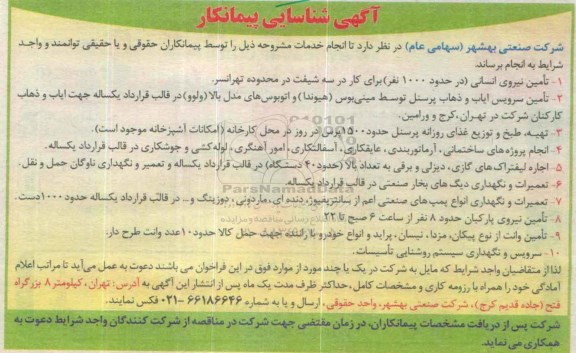 آگهی شناسایی پیمانکار
شرکت صنعتی بهشهر (سهامی عام) در نظر دارد تا انجام خدمات مشروحه ذیل را توسط پیمانکاران حقوقی و یا حقیقی توانمند و واجد
شرایط به انجام برساند.
۱- تأمین نیروی انسانی (در حدود ۱۰۰۰ نفر) برای کار در سه شیفت در محدوده تهرانسر.
۲- تأمین سرویس ایاب و ذهاب پرسنل توسط مینی‌بوس (هیوندا) و اتوبوس‌های مدل بالا (ولوو) در قالب قرارداد یکساله جهت ایاب و ذهاب
کارکنان شرکت در تهران، کرج و ورامین.
۳- تهیه، طبخ و توزیع غذای روزانه پرسنل حدود ۱۵۰۰ پرس در روز در محل کارخانه (امکانات آشپزخانه موجود است).
۴- انجام پروژه‌های ساختمانی، آرماتوربندی، عایقکاری، آسفالتکاری، امور آهنگری، لوله‌کشی و جوشکاری در قالب قرارداد یکساله.
۵- اجاره لیفتراک‌های گازی، دیزلی و برقی به تعداد بالا (حدود ۴۰ دستگاه) در قالب قرارداد یکساله و تعمیر و نگهداری ناوگان حمل و نقل.
۶- تعمیرات و نگهداری دیگ های بخار صنعتی در قالب قرارداد یکساله.
۷- تعمیرات و نگهداری انواع پمپ های صنعتی اعم از سانتریفیوژ، دنده ای، ماردونی، دوزینگ و... در قالب قرارداد یکساله حدود ۱۰۰۰ دست.
۸- تأمین نیروی پارکبان حدود ۸ نفر از ساعت ۶ صبح تا ۲۲
۹- تأمین وانت از نوع پیکان، مزدا، نیسان، پراید و انواع خودرو با راننده جهت حمل کالا حدود ۱۰ عدد وانت طرح دار.
۱۰- سرویس و نگهداری سیستم روشنایی تأسیسات.
لذا از متقاضیان واجد شرایط که مایل به شرکت در یک یا چند مورد از موارد فوق در این فراخوان می باشند دعوت به عمل می‌آید تا مراتب اعلام
آمادگی خود را همراه با رزومه کاری و مشخصات کامل، حداکثر ظرف مدت یک ماه پس از انتشار این آگهی به آدرس: تهران، کیلومتر ۸ بزرگراه
فتح (جاده قدیم کرج)، شرکت صنعتی بهشهر، واحد حقوقی، ارسال و یا به شماره ۶۶۱۸۶۶۴۶-۰۲۱ فکس نمایند.
شرکت پس از دریافت مشخصات پیمانکاران، در زمان مقتضی جهت شرکت در مناقصه از شرکت کنندگان واجد شرایط دعوت به
همکاری می نماید.
ParsNamadData